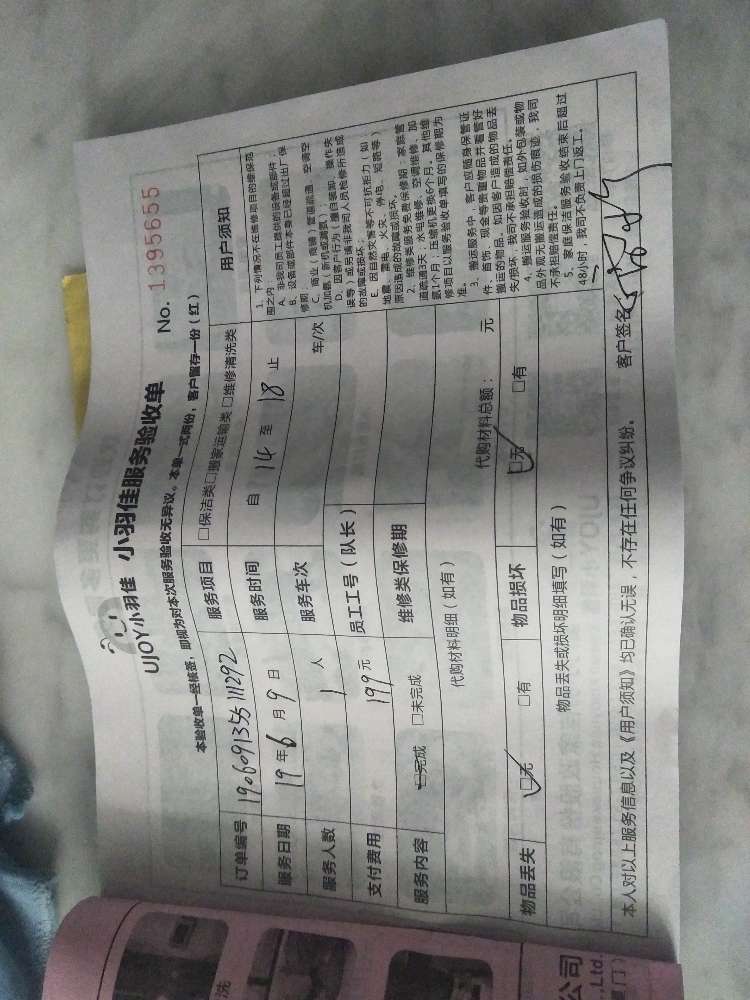 UJOY小羽佳 小羽佳服务验收单
No. 1395655
本验收单一经核签，即视为对本次服务验收无异议。本单一式两份，客户留存一份（红）
订单编号 190609135511292 服务项目 □保洁类□搬家运输类□维修清洗类
服务日期 19年6月9日 服务时间 自 14 至 18 止
服务人数 1 人 服务车次 车/次
支付费用 199元 员工工号（队长）
服务内容 □完成 □未完成 维修类保修期
代购材料明细（如有） 代购材料总额： 元
物品丢失 □无 □有 物品损坏 □无 □有
物品丢失或损坏明细填写（如有）
用户须知
1．下列情况不在维修项目的维保范
围之内：
A．非我司员工提供的设备或部件；
B．设备或部件本身已经超过出厂保
修期；
C．商业（商铺）管道疏通、空调空
机加氨（新机或满氨）；
D．因客户行为（擅自装卸、操作失
误等）或另请非我司人员检修所造成
的故障或损坏；
E．因自然灾害等不可抗拒力（如
地震、雷电、火灾、停电、短路等）
原因造成的故障或损坏。
2．维修类服务免费保修期：家庭管
道疏通3天，水电维修、空调维修、加
氨1个月；压缩机更换6个月。其他维
修项目以服务验收单填写的保修期为
准。
3．搬运服务中，客户应随身保管证
件、首饰、现金等贵重物品并看管好
搬运的物品，如因客户造成的物品丢
失损坏，我司不承担赔偿责任。
4．搬运服务验收时，如外包装或物
品外表无搬运造成的损伤痕迹，我司
不承担赔偿责任。
5．家庭保洁服务验收结束后超过
48小时，我司不负责上门返工。
本人对以上服务信息以及《用户须知》均已确认无误，不存在任何争议纠纷。 客户签名
洗
公司
.,Ltd.
厦门）